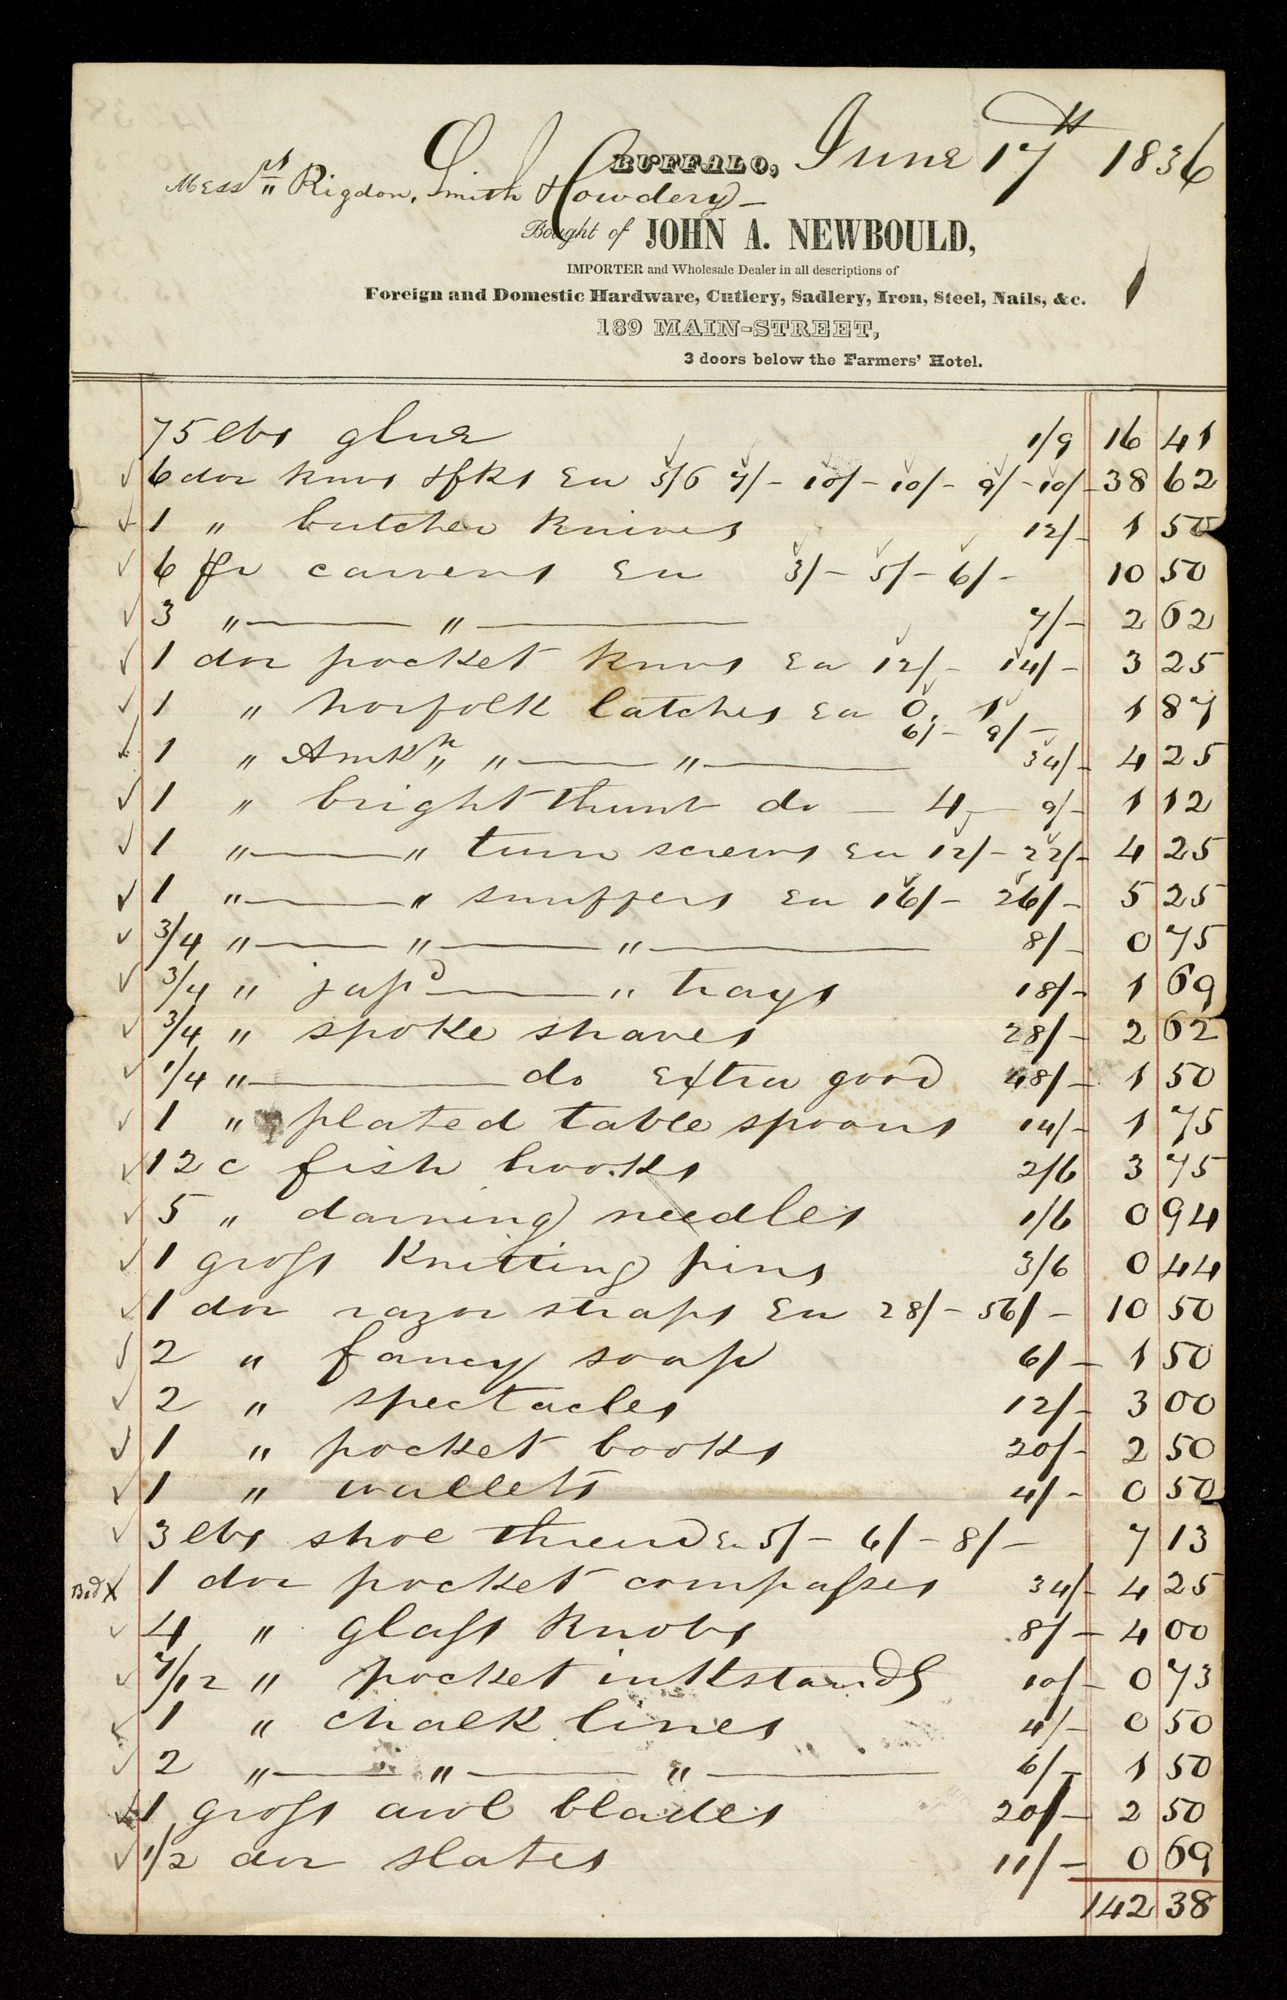 BUFFALO, June 17th 1836
Messrs Rigdon, Smith & Cowdery
Bought of JOHN A. NEWBOULD,
IMPORTER and Wholesale Dealer in all descriptions of
Foreign and Domestic Hardware, Cutlery, Sadlery, Iron, Steel, Nails, &c.
189 MAIN-STREET,
3 doors below the Farmers' Hotel.
75 lbs glue 1/9 16 41
6 doz knvs & fks Ea 5/6 7/- 10/- 10/- 9/- 10/- 38 62
1 " butcher knives 12/- 1 50
6 pr carvers Ea 3/- 5/- 6/- 10 50
3 " " 7/- 2 62
1 doz pocket knvs Ea 12/- 14/- 3 25
1 " norfolk latches Ea 0, 1 1 87
6/- 9/-
1 " " " 34/- 4 25
1 " bright thumb do 4 9/- 1 12
1 " " turn screws Ea 12/- 22/- 4 25
1 " " snuffers Ea 16/- 26/- 5 25
3/4 " " " 8/- 0 75
3/4 " japd " trays 18/- 1 69
3/4 " spoke shaves 28/- 2 62
1/4 " do extra good 48/- 1 50
1 " plated table spoons 14/- 1 75
12 c fish hooks 2/6 3 75
5 " darning needles 1/6 0 94
1 gross Knitting pins 3/6 0 44
1 doz razor straps Ea 28/- 56/- 10 50
2 " fancy soap 6/- 1 50
2 " spectacles 12/- 3 00
1 " pocket books 20/- 2 50
1 " wallets 4/- 0 50
3 lbs shoe thread Ea 5/- 6/- 8/- 7 13
1 doz pocket compasses 34/- 4 25
4 " glass knobs 8/- 4 00
7/12 " pocket inkstands 10/- 0 73
1 " chalk lines 4/- 0 50
2 " " " 6/- 1 50
1 gross awl blades 20/- 2 50
1/2 doz slates 11/- 0 69
142 38